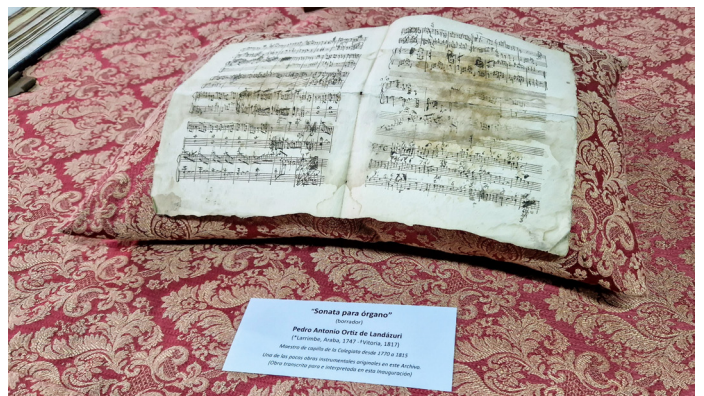 "Sonata para órgano"
(borrador)
Pedro Antonio Ortiz de Landázuri
(*Larrimbe, Araba, 1747 - †Vitoria, 1817)
Maestro de capilla de la Colegiata desde 1770 a 1815
Una de las pocas obras instrumentales originales en este Archivo.
(Obra transcrita para e interpretada en esta Inauguración)